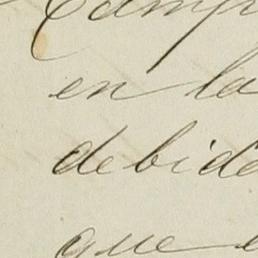 Camp
en la
debida
que e